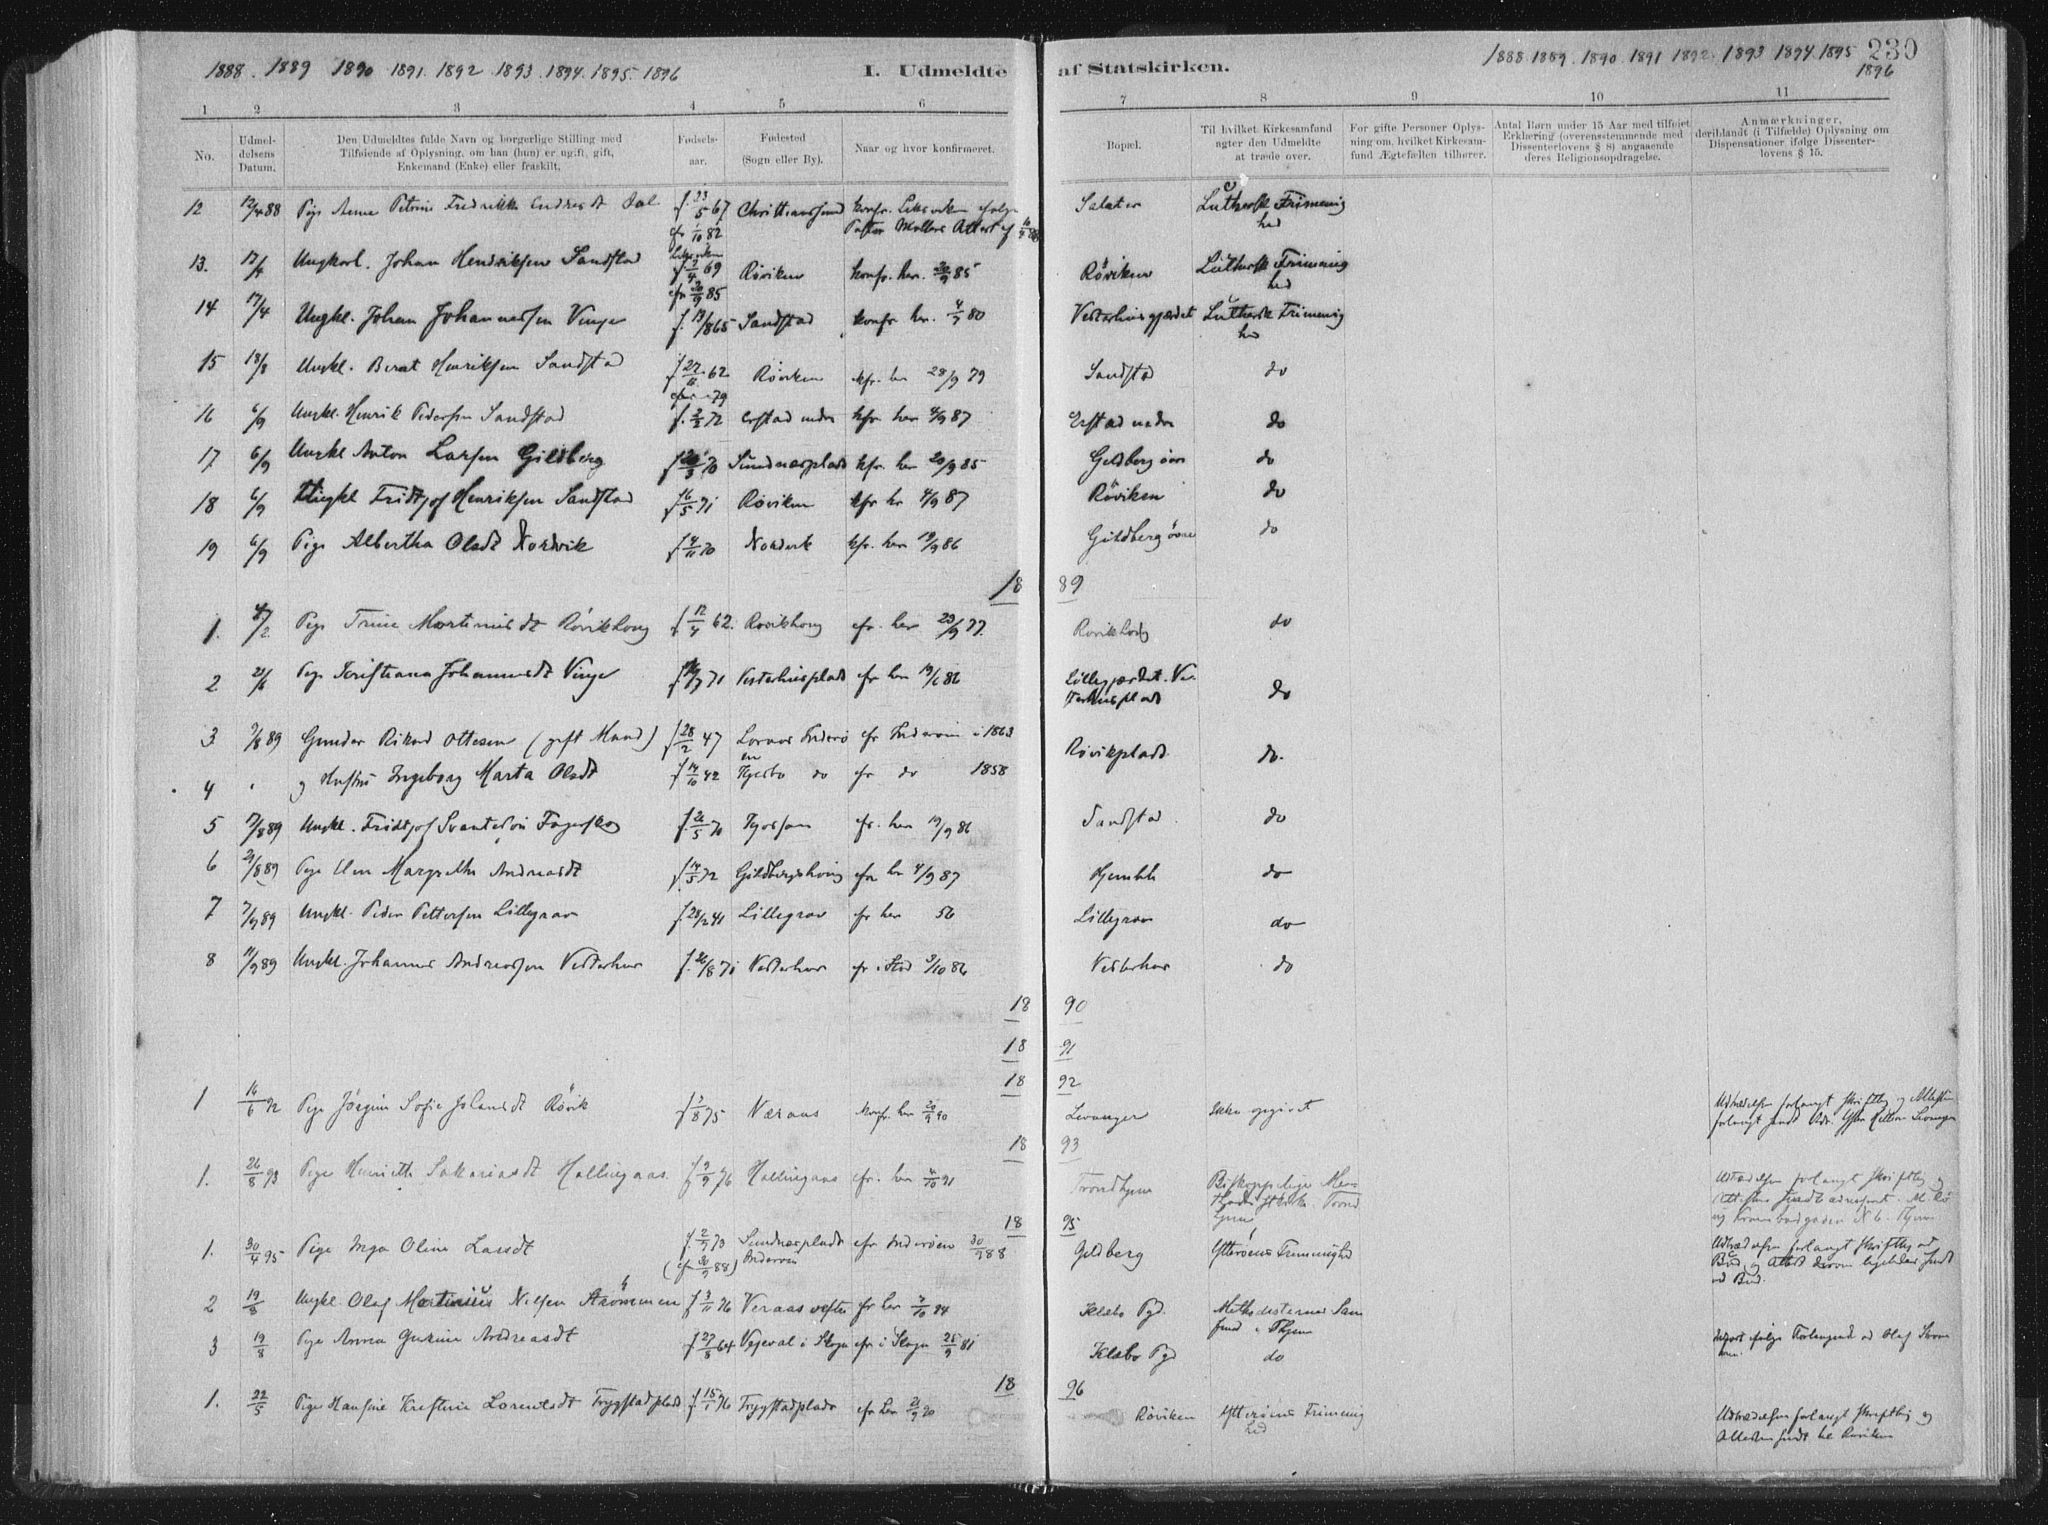 1888. 1889 1890 1891. 1892 1893. 1894. 1895. 1896
I. Udmeldte af Statskirken.
1888. 1889. 1890. 1891 1892. 1893 1894. 1895 230
1896
1 2 3 4 5 6 7 8 9 10 11
No.
Udmeldelsens Datum.
Den Udmeldtes fulde Navn og borgerlige Stilling med Tilføiende af Oplysning, om han (hun) er ugift, gift, Enkemand (Enke) eller fraskilt.
Fødselsaar.
Fødested (Sogn eller By).
Naar og hvor konfirmeret.
Bopæl.
Til hvilket Kirkesamfund agter den Udmeldte at træde over.
For gifte Personer Oplysning om, hvilket Kirkesamfund Ægtefællen tilhører.
Antal Børn under 15 Aar med tilføiet Erklæring (overensstemmende med Dissenterlovens § 8) angaaende deres Religionsopdragelse.
Anmærkninger, deriblandt (i Tilfælde) Oplysning om Dispensationer ifølge Dissenterlovens § 15.
12 12/4 88 Pige Anne Petrine Fredrikke Endresdt Dal f 23/5 67 Christianssund konfr. Leksviken ifølge Salater Luthersk Frimenig
cfr 1/10 82 Pastor Møllers Attest hed
13. 17/4 Ungkarl. Johan Hendriksen Sandstad Leksviken f 2/4 69 Røviken konfr. her. 20/9 85 Røviken Luthersk Frimenig
cfr 20/9 85 hed
14 17/4 Ungkl. Johan Johannessen Vinge f. 13/8 65 Sandstad konfr her. 4/9 80 Vesterhusgjærdet Luthersk Frimenig
hed
15 18/8 Ungkl. Bernt Henriksen Sandstad f 27/11 62 Røviken kfr. her 28/9 79 Sandstad do
16 6/9 Ungkl. Henrik Pedersen Sandstad f. 2/2 72 Erstad nedre kfr her 4/9 87 Erstad nedre do
17 6/9 Ungkl Anton Larsen Gildberg f 3 70 Sundnæsplads kfr. her 20/9 85 Geldberg øvre do
18 6/9 Ungkl Fridtjof Henriksen Sandstad f 16/5 71 Røviken kfr hr 4/9 87 Røviken do
19 6/9 Pige Albertha Olsdt Nordvik f 4/11 70 Nordvik kfr. her 19/9 86 Gildberg øvre do
18 89
1. 4/2 Pige Trine Martinusdt Røvikhoug f 12/4 62. Røvikhoug cfr. her 23/9 77. Røvikhoug do
2 21/6 Pige Kristiana Johannesdt Vinge 71 Vesterhusplads cfr her 19/6 86 Lillegjærdet. Ve-
sterhusplads do
3 9/8 89 Gunder Rikard Ottesen (gift Mand) f 28/2 47 Inderø cfr Inderøen i 1863 Røvikplads do.
4 " og Hustru Ingeborg Marta Olsdt f 14/10 42 do cfr do 1858
5 17/8 89 Ungkl. Fridtjof Svantesøn Fagerskog f. 21/5 70 cfr. her 19/9 86 Sandstad do
6 21/8 89 Pige Elen Margrethe Andreasdt f. 14/5 72 Gildbergshoug cfr her 4/9 87 Hjemble do
7 7/9 89 Ungkl. Peder Pettersen Lillegrav f. 28/2 41 Lillegrav cfr her 56 Lillegrav do
8 11/9 89 Ungkl. Johannes Andreassen Vesterhus f. 26/8 71 Vesterhus cfr i Stod 3/10 86 Vesterhus do
18 90
18 91
18 92
1 16/6 92 Pige Jørgine Sofie Johansdt Røvik f 3/8 75 Næraas konfr. her 20/9 90 Levanger Ikke opgivet Udtrædelsen forlangt skriftlig og Attesten
forlangt sendt Adr. Levanger
18 93
1. 26/8 93 Pige Henriette Sakariasdt Hallingaas f 9/9 76 Hallingaas cfr. her 4/10 91 Trondhjem Biskoppelige Me-
thodistkirke Trond
hjem Udtrædelsen forlangt skriftlig og
Attesten sendt
18 95
1. 30/4 95 Pige Inga Oline Larsdt f. 2/9 73 Sundnæsplads cfr Inderøen 30/9 88 Geldberg Ytterøens Frimenighed Udtrædelsen forlangt skriftlig ved
(cfr 30/9 88) Inderøen Bud og Attest derom ligeledes sendt
ved Bud.
2 19/8 Ungkl Olaf Martinius Nilsen Strømmen f 3/11 76 Veraas vestre cfr her 7/10 94 Klæbo Pgd. Methodisternes Sam
fund i Thjem
3 19/8 Pige Anna Gurine Andreasdt f 27/8 64 i Skogn cfr i Skogn 25/9 81 Klæbo Pgd do ifølge Forlangende ved Olaf Strøm
men.
18 96
1. 22/5 Pige Hansine Kristine Lorentsdt Trygstadplads f 15/1 76 Trygstadplads cfr her 21/9 90 Røviken Ytterøens Frimenig
hed Udtrædelsen forlangt skriftlig og
Attesten sendt til Røviken